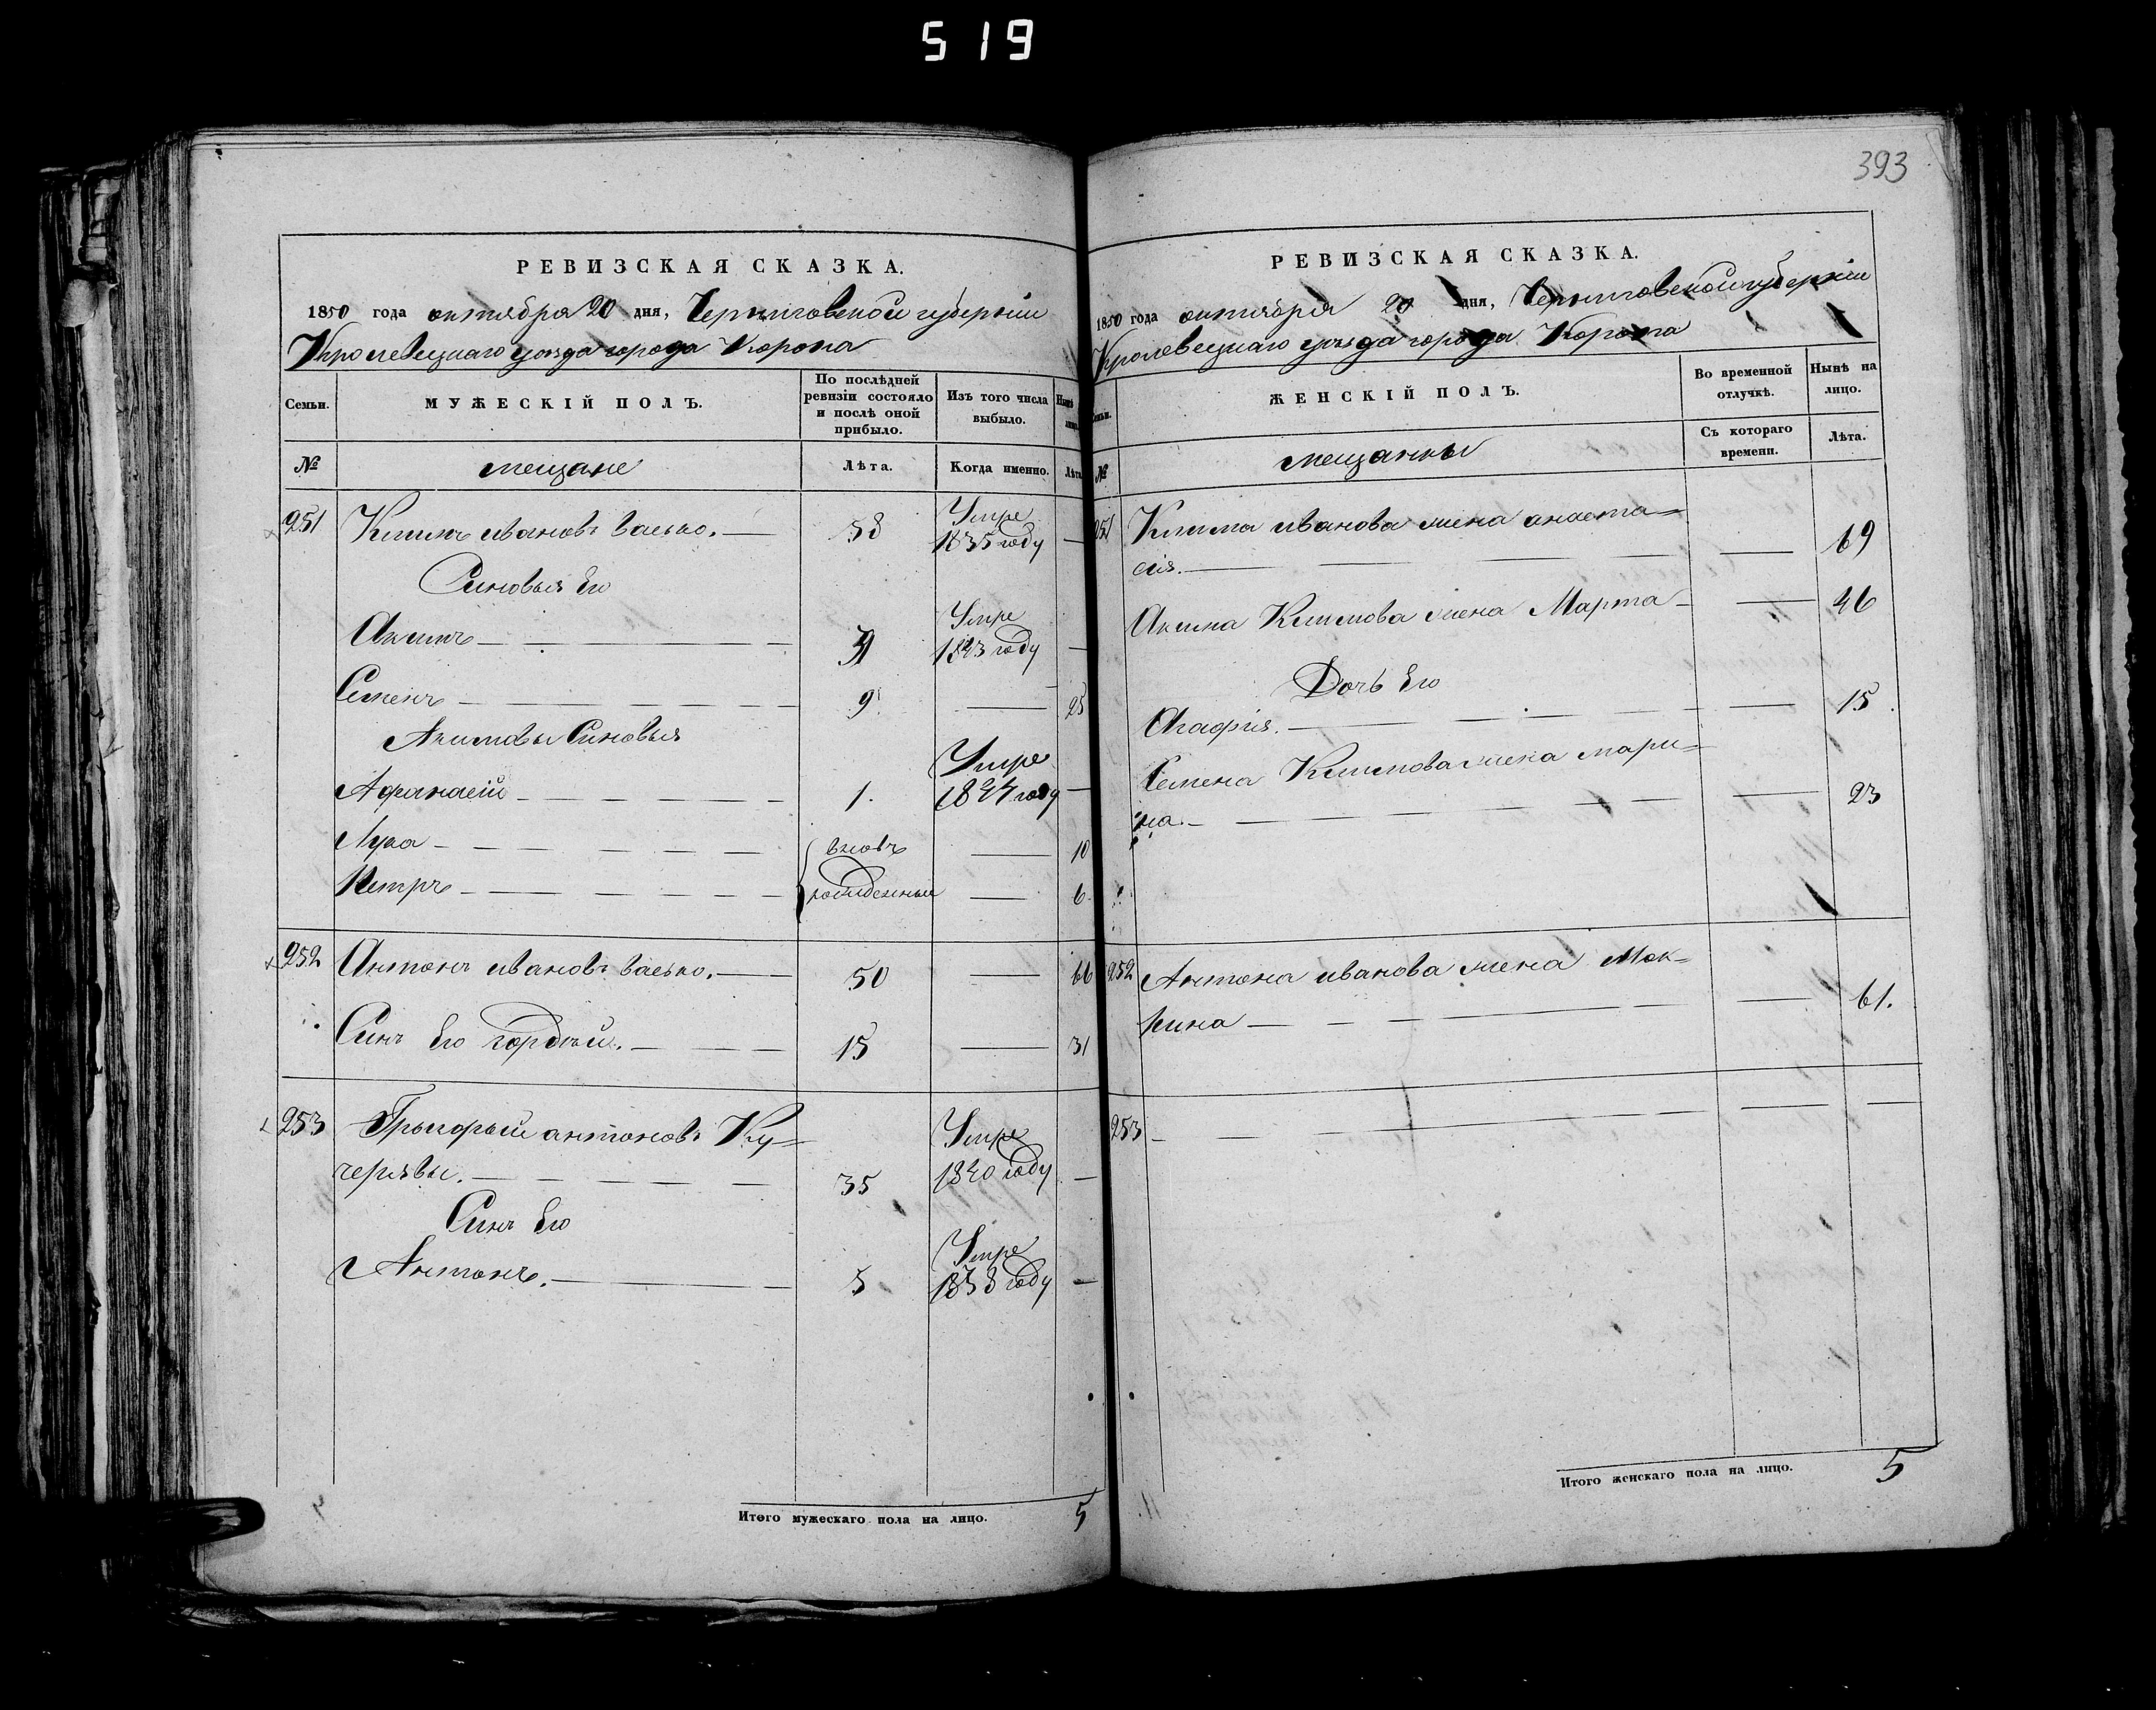 519
393
РЕВИЗСКАЯ СКАЗКА.
1850 года октября 20 дня, Черниговской губерніи
Кролевецкаго уѣзда города Коропа
Семьи.
МУЖЕСКІЙ ПОЛЪ.
По послѣдней ревизіи состояло и послѣ оной прибыло.
Изъ того числа выбыло.
№
мещане
Лѣта.
Когда именно.
Лѣта
251 Климъ ивановъ васько. — 58 Умре 1835 году —
Синовья Его
Акимъ — Умре 1843 году —
Семенъ — 9 — 25
Акимовы Синовья
Афанасій — 1. Умре 1844 году —
Лука — вновь — 10
Петръ — рожденные — 6.
252 Антонъ ивановъ васько. — 50 — 66
Синъ Его гордѣй. — 15 — 31
253 Григорый антоновъ Ку=
черявы. — 35 Умре 1840 году —
Синъ Его
Антонъ. — 5 Умре 1838 году —
Итого мужескаго пола на лицо. 5
РЕВИЗСКАЯ СКАЗКА.
1850 года октября 20 дня, Черниговской губерніи
Кролевецкаго уѣзда города Коропа
ЖЕНСКІЙ ПОЛЪ.
Во временной отлучкѣ.
Нынѣ на лицо.
№
мещанки
Съ котораго времени.
Лѣта.
251 Клима иванова жена анаста=
сія. — — 69
Акима Климова жена Марта — — 46
Дочь Его
Агафія. — — 15
Семена Климова жена мари=
на. — — 23
252 Антона иванова жена Мок=
рина — — 61.
253 — — —
Итого женскаго пола на лицо. 5